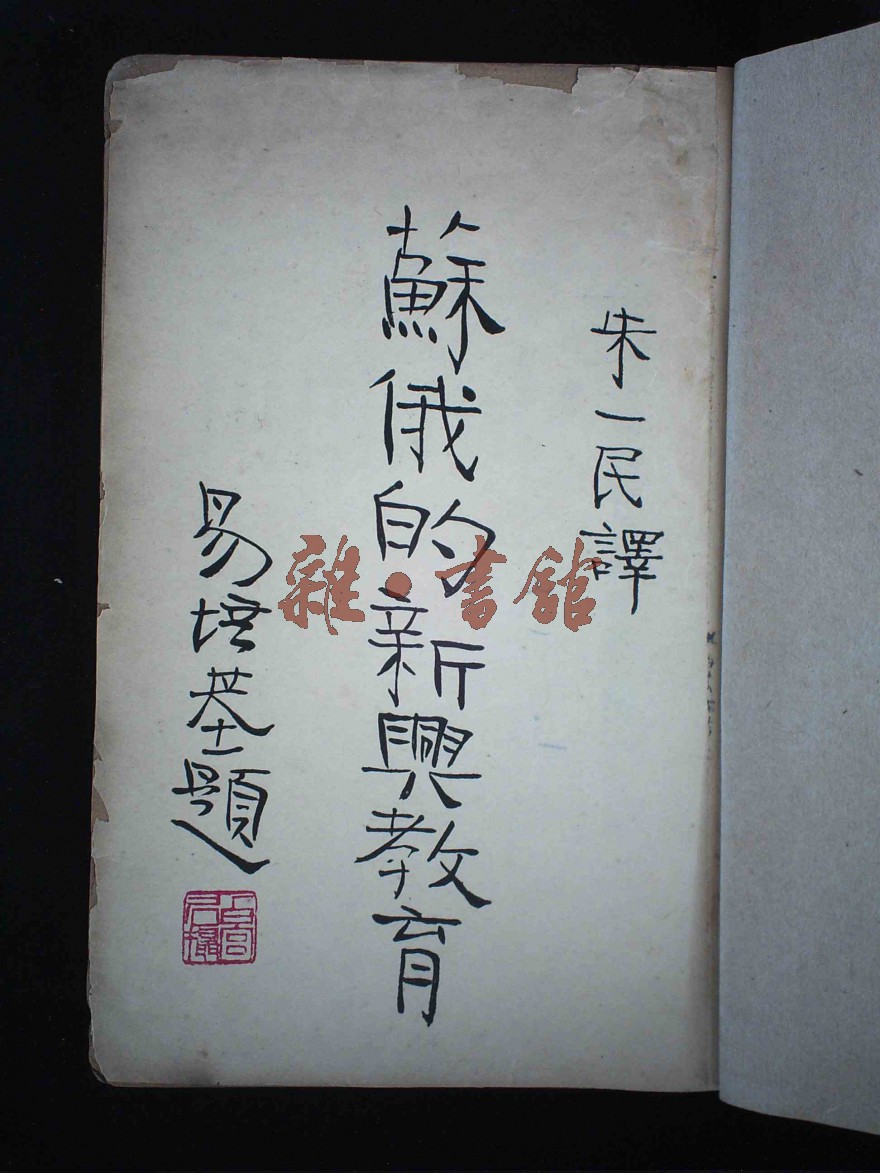 朱一民譯
蘇俄的新興教育
易培基題
雜·書館